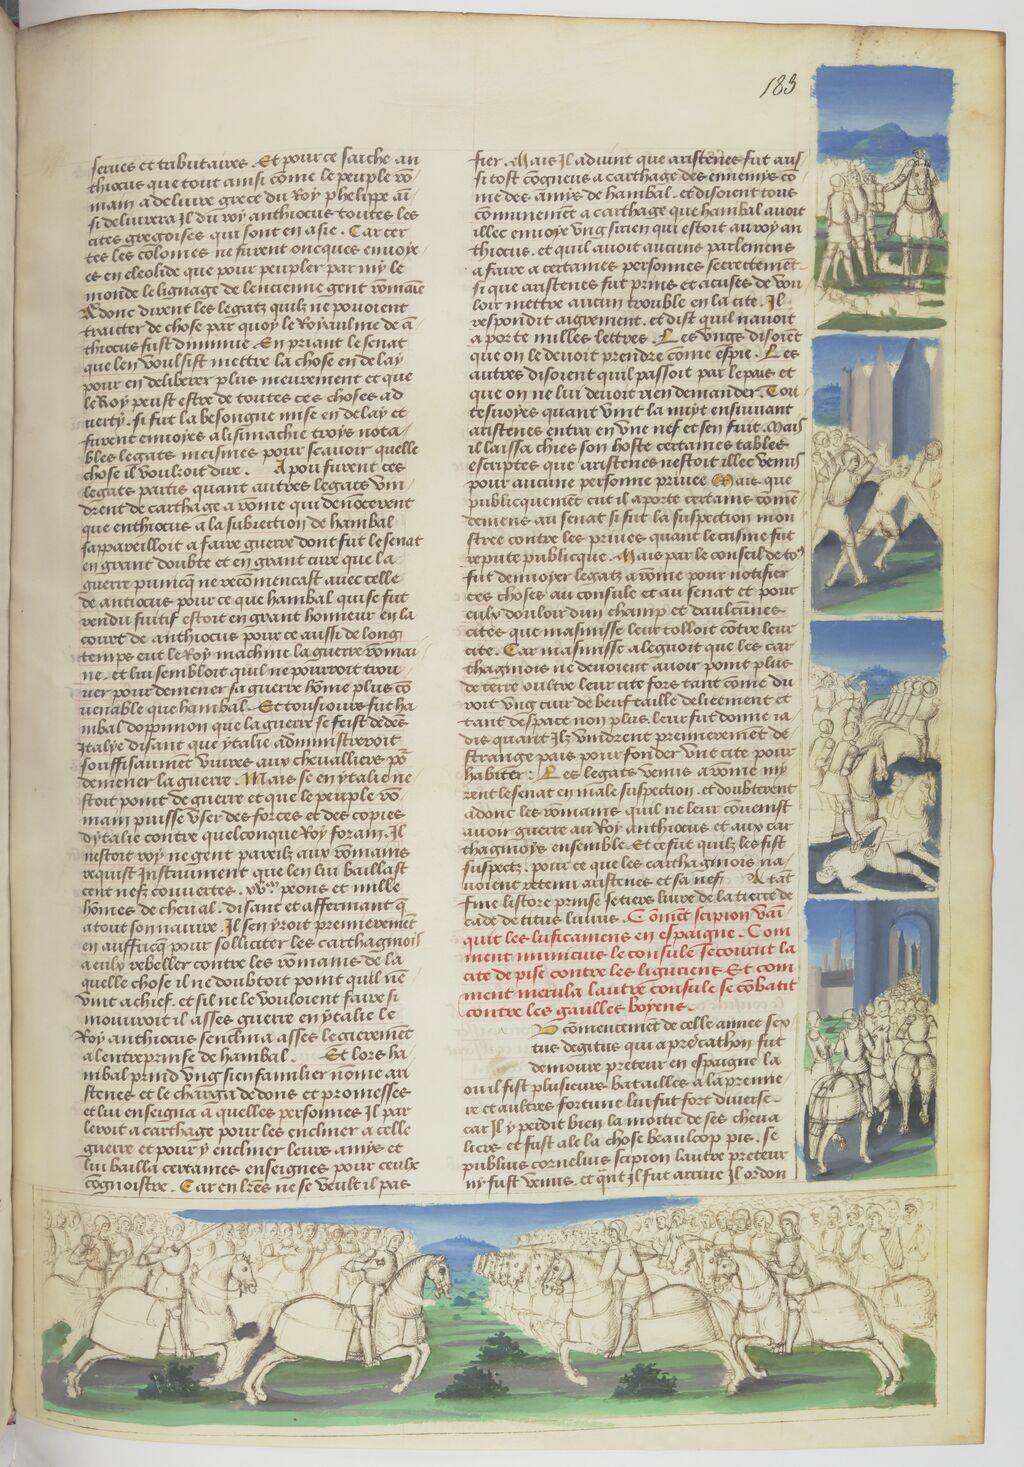 183
serves et tributaires. Et pour ce saiche an
thiocus que tout ainsi come le peuple ro
main a delivre grece du Roy phelippe au
si delivrera Il du roy anthiocus toutes les
cites gregoises qui sont en asie. Car cer
tes les colonies ne furent oncques envoye
es en eleolide que pour peupler par my le
monde le lignage de lencienne gent romaine
Adonc dirent les legatz quilz ne pouoient
traicter de chose par quoy le Royaulme de a
thiocus fust diminue. En priant le senat
que len voulsist mettre la chose en delay
pour en deliberer plus meurement et que
le Roy peust estre de toutes ces choses ad
verty. si fut la besongne mise en delay et
furent envoyes a lisimachie troys nota
bles legatz meismes pour scavoir quelle
chose il vouloit dire. A pou furent ces
legatz partis quant autres legatz vin
drent de carthage a rome qui denocerent
que enthiocus a la subiection de hanibal
sappareilloit a faire guerre dont fut le senat
en grant doubte et en grant cure que la
guerre punicq ne recomencast avec celle
de antiocus pour ce que hanibal qui se fut
rendu fuitif estoit en grant honneur en la
court de anthiocus pour ce aussi de long
temps eut le Roy machine la guerre romai
ne. et lui sembloit quil ne pourroit trou
ver pour demener sa guerre home plus co
venable que hanibal. Et tousiours fut ha
nibal doppinion que la guerre se feist dedes
Italye disant que ytalie administreroit
souffisaument vivres aux chevalliers po
demener la guerre. Mais se en ytalie ne
stoit point de guerre et que le peuple ro
main puisse user des forces et des copies
dytalie contre quelconque Roy forain. Il
nestoit roy ne gent pareilz aux romains
requist Instaument que len lui baillast
cent nefz couvertes. peons et mille
homes de cheval. disant et affermant q
a tout son navire. Il sen yroit premierement
en auffricq pour solliciter les carthaginois
a eulx rebeller contre les romains de la
quelle chose il ne doubtoit point quil ne
vint a chief. et sil ne le vouloient faire si
mouvroit il asses guerre en ytalie le
Roy anthiocus senclina asses legierement
a lentreprinse de hanibal. Et lors ha
nibal prind ung sien familier nome ari
stenes et le charga de dons et promesses
et lui enseigna a quelles personnes Il par
leroit a carthage pour les encliner a celle
guerre et pour y encliner leurs amys et
lui bailla certaines enseignes pour ceulx
cognoistre. Car en lres ne se veult il pas
fier. Mais Il advint que aristenes fut aus
si tost congneus a carthage des ennemys co
me des amys de hanibal. et disoient tous
comunement a carthage que hanibal avoit
illec envoye ung sirien qui estoit au roy an
thiocus. et quil avoit aucuns parlemens
a faire a certaines personnes secrettement
si que aristenes fut prins et acuses de vou
loir mettre aucun trouble en la cite. Il
respondit aigrement. et dist quil navoit
aporte nulles lettres. Les ungs disoient
que on le devoit prendre come espie. Les
autres disoient quil passoit par le pais et
que on ne lui devoit rien demander. Tou
tesvoyes quant vint la nuyt ensuivant
aristenes entra en une nef et sen fuit. Mais
il laissa chies son hoste certaines tables
escriptes que aristenes nestoit illec venus
pour aucune personne privee Mais que
publicquement eut il aporte certains come
demens au senat si fut la suspection mon
stree contre les prives quant le crisme fut
repute publicque. Mais par le conseil de tos
fut denvoyer legatz a rome pour notifier
ces choses au consule et au senat et pour
eulx douloir dun champ et daulcunes
cites que masinisse leur tolloit contre leur
cite. Car masinisse alegnoit que les car
thaginois ne devoient avoir point plus
de terre oultre leur cite fors tant come du
roit ung cuir de beuf taille delieement et
tant despace non plus. leur fut donne ia
dis quant Ilz vindrent premierement de
strange pais pour fonder une cite pour
habiter. Les legatz venus a rome my
rent le senat en male suspection. et doubterent
adonc les romains quil ne leur convenist
avoir guerre au Roy anthiocus et aux car
thaginoys ensemble. Et ce fut quilz les fist
suspectz. pour ce que les carthaginois na
voient retenu aristenes et sa nef. A tat
fine listore prinse se tiers livre de la tierce de
cade de titus livius. Coment scipion vai
quit les lusicaniens en espaigne. Com
ment municius le consule secourut la
cite de pise contre les liguriens Et com
ment merula lautre consule se combatit
contre les gaulles boyens.
comencement de celle annee sex
tus degitus qui apre cathon fut
demoure preteur en espaigne la
ou il fist plusieurs batailles a la premie
re et aultres fortune lui fut fort diverse.
car Il y perdit bien la moitie de ses cheva
liers et fust ale la chose beaulcop pis. se
publius cornelius scipion lautre preteur
ny fust venus. et qnt il fut arrive Il ordon